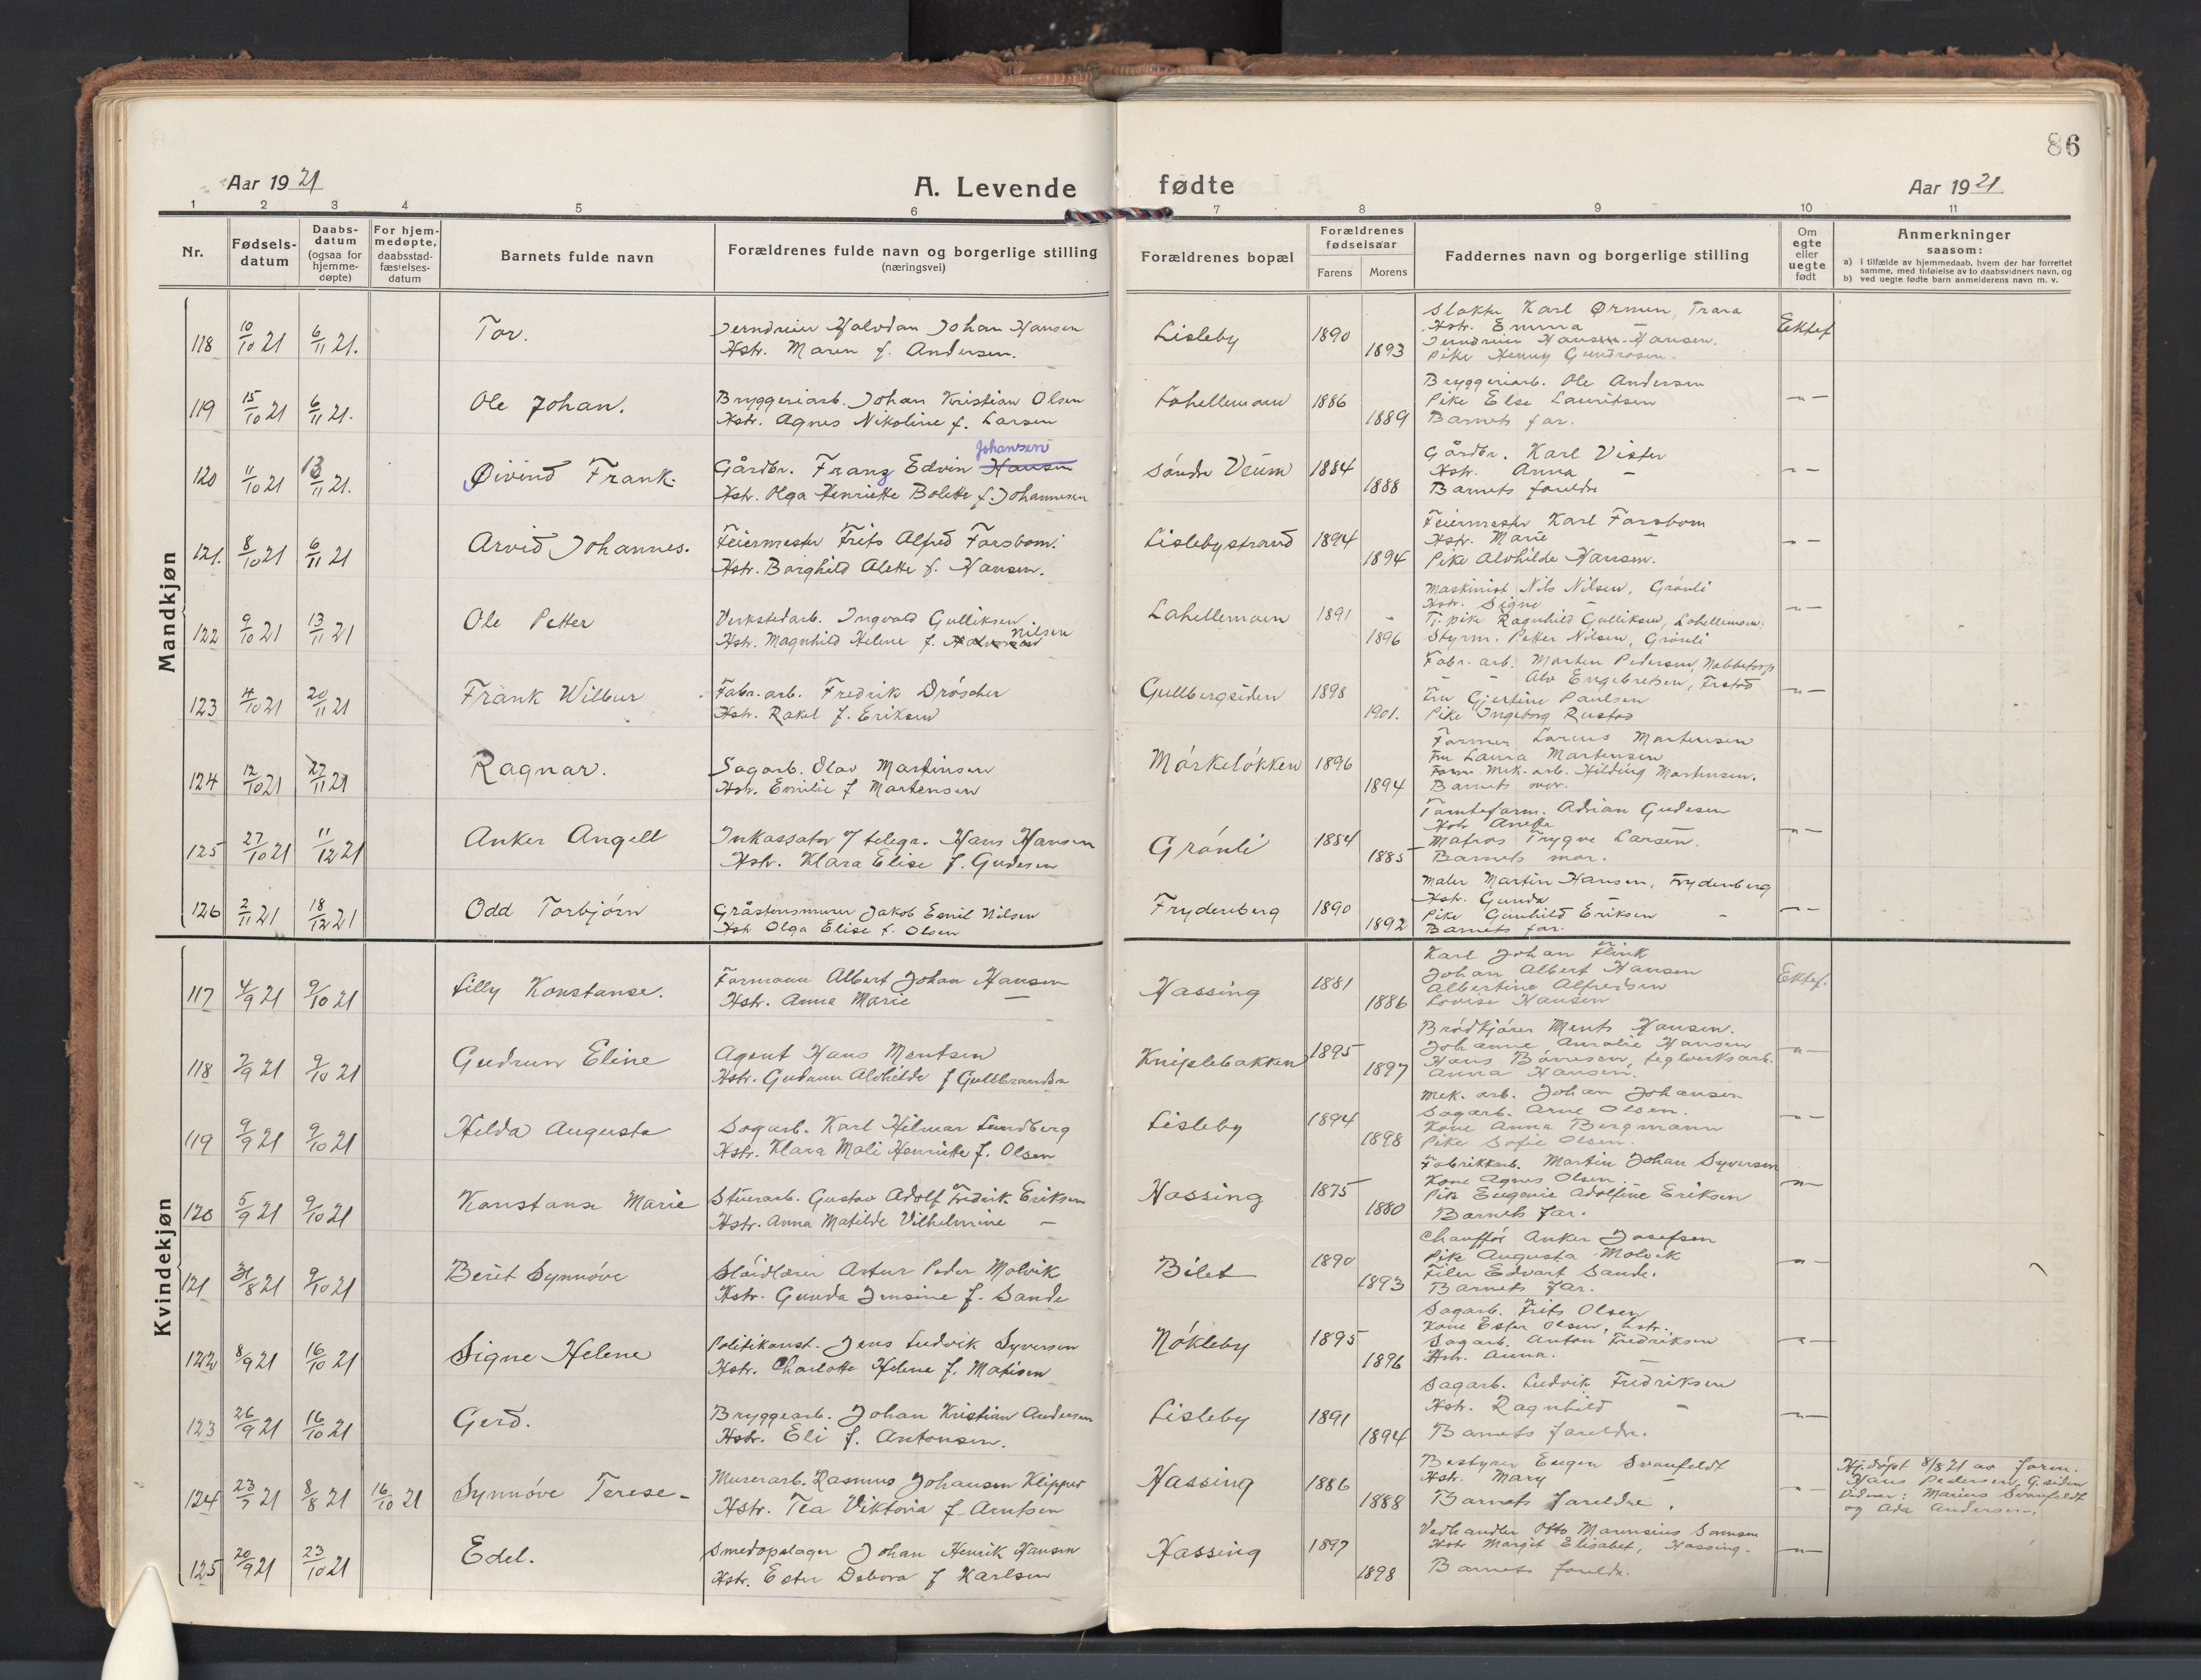 86
Aar 1921
A. Levende fødte
Aar 1921
1 2 3 4 5 6 7 8 9 10 11
Nr.
Fødsels-datum
Daabs-datum (ogsaa for hjemme-døpte)
For hjem-medøpte, daabsstad-fæstelses-datum
Barnets fulde navn
Forældrenes fulde navn og borgerlige stilling (næringsvei)
Forældrenes bopæl
Forældrenes fødselsaar
Farens Morens
Faddernes navn og borgerlige stilling
Om egte eller uegte født
Anmerkninger saasom:
a) I tilfælde av hjemmedaab, hvem der har forrettet samme, med tilføielse av to daabsvidners navn, og
b) ved uegte fødte barn anmelderens navn m. v.
Mandkjøn
118 10/10 21 6/11 21. Tor.
Jerndreier Halvdan Johan Hansen
Hstr. Maren f. Andersen.
Lisleby 1890 1893
Slakter Karl Ørmen, Trara
Hstr. Emma —
Jerndreier Hans Hansen.
Pike Henny Gundrosen.
Ektef
119 15/10 21 6/11 21. Ole Johan.
Bryggeriarb. Johan Kristian Olsen
Hstr. Agnes Nikoline f. Larsen
Lahellemoen 1886 1889
Bryggeriarb. Ole Andersen
Pike Else Lauritsen
Barnets far.
—"—
120 11/10 21 13/11 21. Øivind Frank.
Johansen
Gårdbr. Franz Edvin Hansen
Hstr. Olga Henriette Bolette f. Johannesen
Søndre Veum 1884 1888
Gårdbr. Karl Vister
Hstr. Anna —
Barnets foreldre
—"—
121. 8/10 21 6/11 21 Arvid Johannes.
Feiermester Frits Alfred Farsbom.
Hstr. Borghild Alette f. Hansen.
Lislebystrand 1894 1894
Feiermester Karl Farsbom
Hstr. Marie —
Pike Alvhilde Hansen.
—"—
122 9/10 21 13/11 21 Ole Petter
Verkstedarb. Ingvald Gulliksen
Hstr. Magnhild Helene f. Nilsen
Lahellemoen 1891 1896
Maskinist Nils Nilsen, Grønli
Hstr. Signe —
Tj. pike Ragnhild Gulliksen, Lahellemoen.
Styrm. Petter Nilsen, Grønli
—"—
123 4/10 21 20/11 21 Frank Wilbur
Fabr. arb. Fredrik Drøscher
Hstr. Rakel f. Eriksen
Gullbergsiden 1898 1901.
Fabr. arb. Morten Pedersen, Nabbetorp
— Alv Engebretsen,
Fru Gjertine Paulsen
Pike Ingeborg Rustad
—"—
124 12/10 21 27/11 21 Ragnar.
Sagarb. Olav Martinsen
Hstr. Emilie f Martensen
Mørkeløkken 1896 1894
Farmer Martensen
Fru Laura Martensen
Mek. arb. Hilding Martensen.
Barnets mor.
125 27/10 21 11/12 21 Anker Angell
Inkassator v/ telegr. Hans Hansen
Hstr. Klara Elise f. Gudesen
Grønli 1884 1885
Tomteform. Adrian Gudesen
Hstr Anette
Matros Trygve Larsen.
Barnets mor.
—"—
126 2/11 21 18/12 21 Odd Torbjørn
Gråstensmurer Jakob Emil Nilsen
Hstr Olga Elise f. Olsen
Frydenberg 1890 1892
Maler Martin Hansen, Frydenberg
Hstr. Gunda —
Pike Gunhild Eriksen —
Barnets far.
—"—
Kvindekjøn
117 4/9 21 9/10 21 Lilly Konstanse.
Formann Albert Johan Hansen
Hstr. Anna Marie —
Hassing 1881 1886
Karl Johan Flink
Johan Albert Hansen
Albertine Alfredsen
Lovise Hansen
Ektef.
118 7/9 21 9/10 21 Gudrun Eline
Agent Hans Mentsen
Hstr. Gudrun Alvhilde f Gulbrandsen
Kniplebakken 1895 1897
Brødkjører Ments Hansen.
Johanne Amalie Hansen
Hans Børresen, teglverksarb.
Anna Hansen.
—"—
119 9/9 21 9/10 21 Hilda Augusta
Sagarb. Karl Hilmar Lundberg
Hstr. Klara Mali Henriette f. Olsen
Lisleby 1894 1898
Mek. arb. Johan Johansen
Sagarb. Arne Olsen.
Kone Anna Bergmann
Pike Sofie Olsen.
—"—
120 5/9 21 9/10 21 Konstanse Marie
Stuerarb. Gustav Adolf Fredrik Eriksen
Hstr. Anna Matilde Vilhelmine —
Hassing 1875 1880
Fabrikkarb. Martin Johan Syversen
Kone Agnes Olsen.
Pike Eugenie Adolfine Eriksen
Barnets far.
—"—
121 31/8 21 9/10 21 Berit Synnøve
Sløidlærer Artur Peder Molvik
Hstr. Gunda Jensine f. Sande
Bilet 1890 1893
Chauffør Anker Josefsen
Pike Augusta Molvik
Filer Edvart Sande.
Barnets far.
—"—
122 8/9 21 16/10 21 Signe Helene
Politikonst. Jens Ludvik Syversen
Hstr. Charlotte Helene f. Matisen
Nøkleby 1895 1896
Sagarb. Frits Olsen
Kone Ester Olsen, hstr.
Sagarb. Anton Fredriksen
Hstr. Anna. —
—"—
123 26/9 21 16/10 21 Gerd.
Bryggearb. Johan Kristian Andersen
Hstr. Eli f. Antonsen.
Lisleby 1891 1894
Sagarb. Ludvik Fredriksen
Hstr. Ragnhild —
Barnets foreldre.
—"—
124 23/7 21 8/8 21 16/10 21 Synnøve Terese
Murerarb. Rasmus Johansen Klipper
Hstr. Tea Viktoria f. Arntsen
Hassing 1886 1888
Bestyrer Eugen Svanfeldt
Hstr. Mary —
Barnets foreldre.
—"—
Hj.døpt 8/8 21 av form.
Hans Pedersen, G.siden
Vidner: Marius Svanfeldt
og Ada Andersen.
125 20/9 21 23/10 21 Edel.
Smedopslager Johan Henrik Hansen
Hstr. Ester Debora f Karlsen
Hassing 1897 1898
Vedhandler Otto Marensius Sørensen
Hstr Margit Elisabet, Hassing.
Barnets foreldre.
—"—